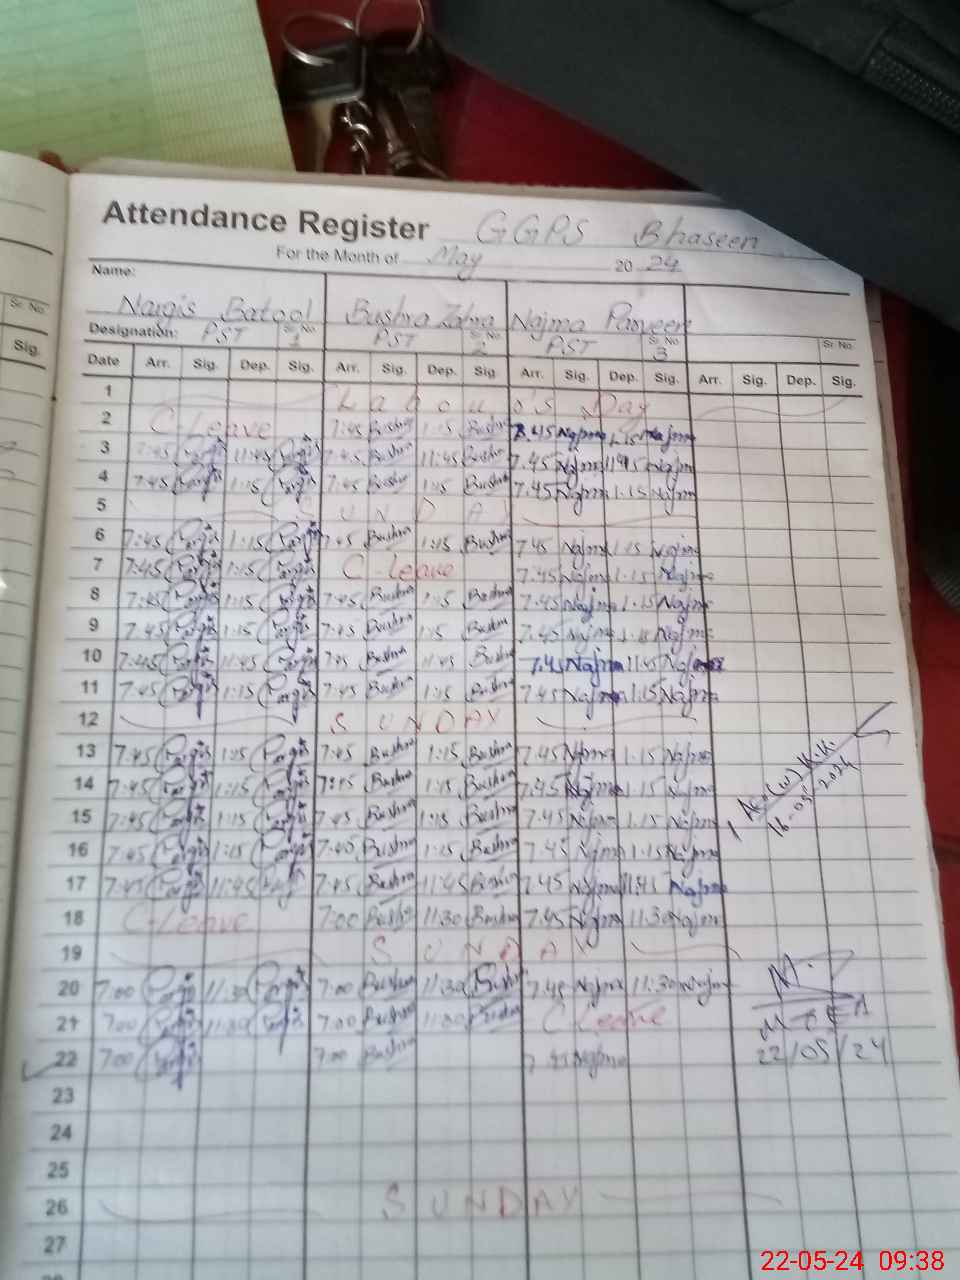 Attendance Register GGPS Bhaseen
For the Month of May 2024
Name:
Nargis Batool Bushra Zahra Najma Parveen
Sr. No.
Designation: PST Sr. No. 1 PST Sr. No. 2 PST Sr. No. 3 Sr. No.
Sig.
Date Arr. Sig. Dep. Sig. Arr. Sig. Dep. Sig. Arr. Sig. Dep. Sig. Arr. Sig. Dep. Sig.
1 Labour's Day
2 C Leave 7:45 Bushra 1:15 Bushra 7.45 Najma 1.15 Najma
3 7:45 Nargis 11:45 Nargis 7:45 Bushra 11:45 Bushra 7.45 Najma 11.45 Najma
4 7:45 Nargis 1:15 Nargis 7:45 Bushra 1:15 Bushra 7.45 Najma 1.15 Najma
5 SUNDAY
6 7:45 Nargis 1:15 Nargis 7:45 Bushra 1:15 Bushra 7.45 Najma 1.15 Najma
7 7:45 Nargis 1:15 Nargis C-leave 7.45 Najma 1.15 Najma
8 7:45 Nargis 1:15 Nargis 7:45 Bushra 1:15 Bushra 7.45 Najma 1.15 Najma
9 7:45 Nargis 1:15 Nargis 7:45 Bushra 1:15 Bushra 7.45 Najma 1.15 Najma
10 7:45 Nargis 11:45 Nargis 7:45 Bushra 11:45 Bushra 7.45 Najma 11.45 Najma
11 7:45 Nargis 1:15 Nargis 7:45 Bushra 1:15 Bushra 7.45 Najma 1.15 Najma
12 SUNDAY
13 7:45 Nargis 1:15 Nargis 7:45 Bushra 1:15 Bushra 7.45 Najma 1.15 Najma
14 7:45 Nargis 1:15 Nargis 7:45 Bushra 1:15 Bushra 7.45 Najma 1.15 Najma
15 7:45 Nargis 1:15 Nargis 7:45 Bushra 1:15 Bushra 7.45 Najma 1.15 Najma
16 7:45 Nargis 1:15 Nargis 7:45 Bushra 1:15 Bushra 7.45 Najma 1.15 Najma
17 7:45 Nargis 11:45 Nargis 7:45 Bushra 11:45 Bushra 7.45 Najma 11.45 Najma
18 C-Leave 7:00 Bushra 11:30 Bushra 7.45 Najma 11.30 Najma
19 SUNDAY
20 7:00 Nargis 11:30 Nargis 7:00 Bushra 11:30 Bushra 7.45 Najma 11:30 Najma
21 7:00 Nargis Nargis 7:00 Bushra Bushra C Leave
22 7:00 Nargis 7:00 Bushra 7.45 Najma
16-05-2024
MEA
22/05/24
23
24
25
26 SUNDAY
27
22-05-24 09:38